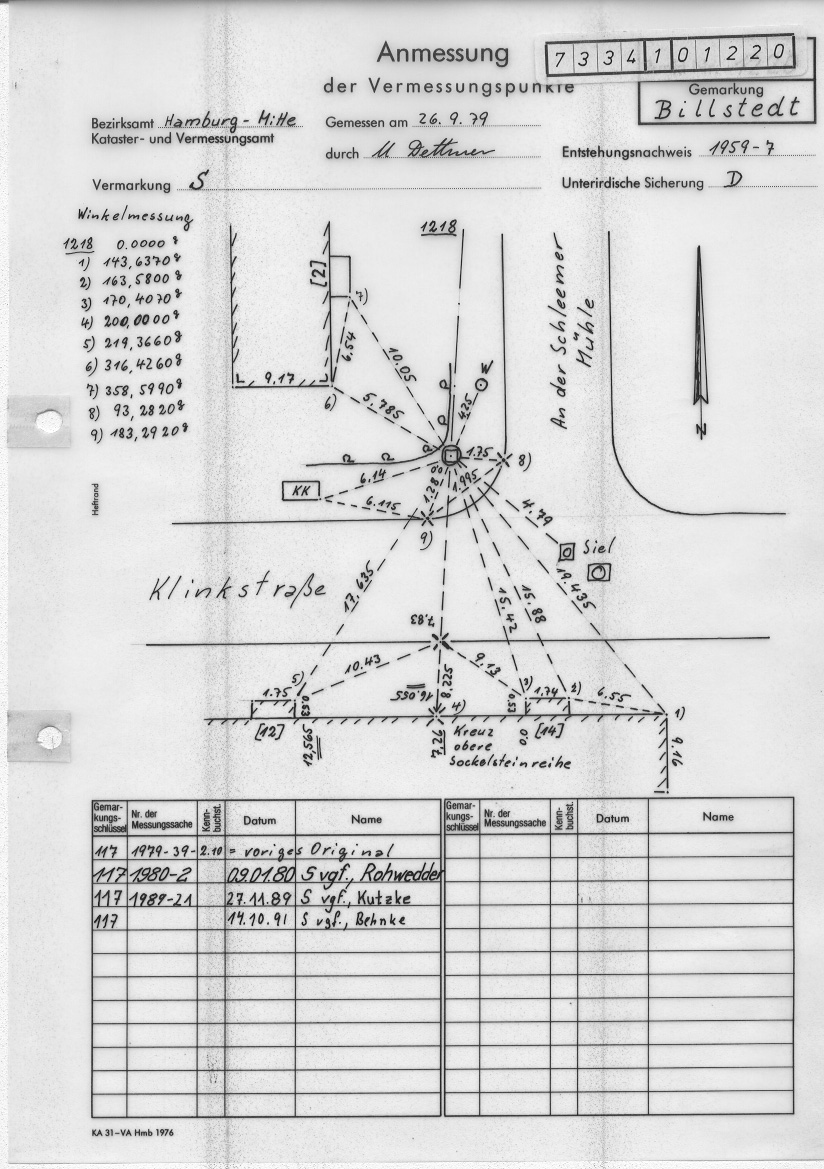 Anmessung
der Vermessungspunkte
7 3 3 4 1 0 1 2 2 0
Gemarkung
Billstedt
Bezirksamt Hamburg-Mitte
Kataster- und Vermessungsamt
Gemessen am 26.9.79
durch M Dettmer
Entstehungsnachweis 1959-7
Vermarkung S
Unterirdische Sicherung D
Winkelmessung
1218 0.0000 g
1) 143,6370 g
2) 163,5800 g
3) 170,4070 g
4) 200,0000 g
5) 219,3660 g
6) 316,4260 g
7) 358,5990 g
8) 93,2820 g
9) 183,2920 g
Heftrand
1218
[2]
7)
6.54
10.05
9.17
6)
5.785
W
4.25
An der Schleemer
Mühle
N
1.75
8)
0.0
6.14
KK
6.115
1.28
1.995
9)
4.79
Siel
Klinkstraße
17.635
15.42
15.88
19.435
7.83
10.43
9.13
8.225
16.055
5)
1.75
0.53
4)
3)
0.53
1.74
2)
6.55
1)
[12]
12,565
7.26
Kreuz
obere
Sockelsteinreihe
0.0
[14]
9.16
Gemar-
kungs-
schlüssel
Nr. der
Messungssache
Kenn-
buchst.
Datum
Name
Gemar-
kungs-
schlüssel
Nr. der
Messungssache
Kenn-
buchst.
Datum
Name
117 1979-39- 2.10 = voriges Original
117 1980-2 09.01.80 S vgf., Rohwedder
117 1989-21 27.11.89 S vgf., Kutzke
117 14.10.91 S vgf., Behnke
KA 31-VA Hmb 1976